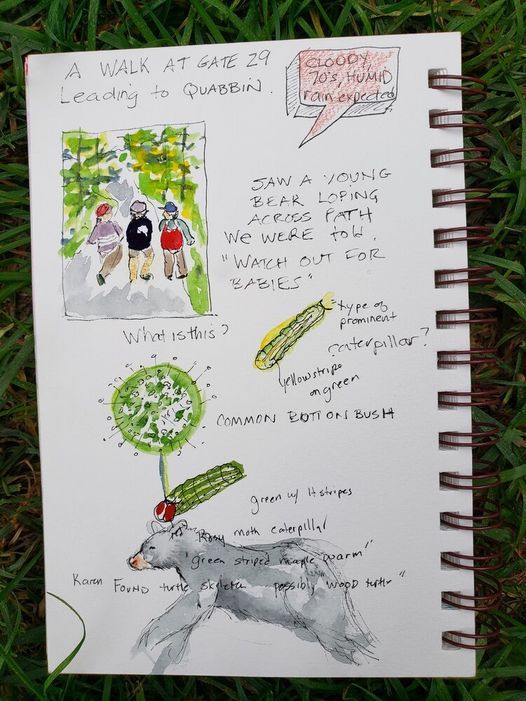 A WALK AT GATE 29
Leading to QUABBIN.
CLOUDY
70's, HUMID
rain expected
SAW A YOUNG
BEAR LOPING
ACROSS PATH
WE WERE TOLD.
"WATCH OUT FOR
BABIES"
What is this?
type of
prominent
caterpillar?
yellow stripe
on green
COMMON BUTTON BUSH
green w/ lt stripes
Rosy moth caterpillar
"green striped maple worm"
Karen FOUND turtle skeleton possibly "wood turtle"